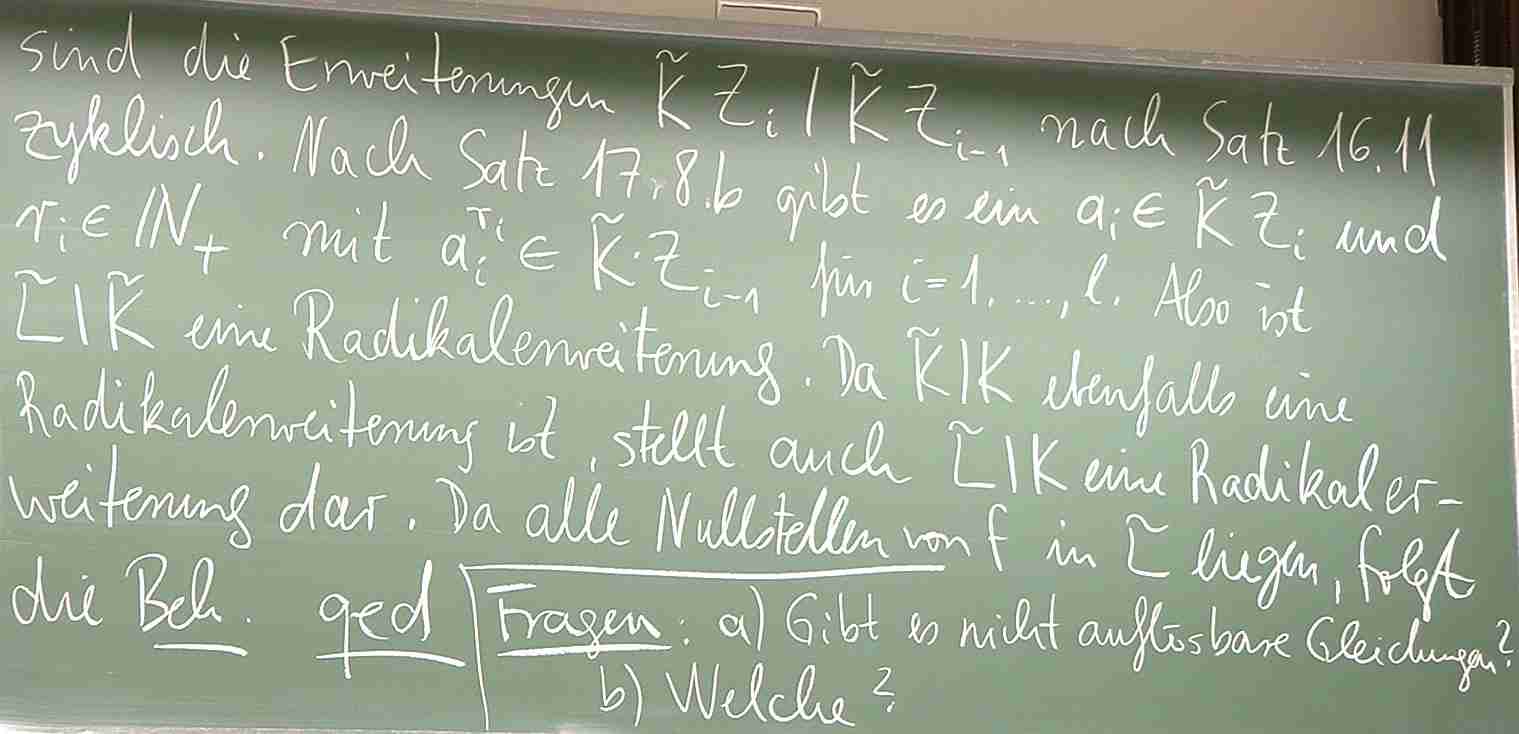 sind die Erweiterungen K̃ Z_i | K̃ Z_{i-1} nach Satz 16.11
zyklisch. Nach Satz 17.8.b gibt es ein a_i ∈ K̃ Z_i und
r_i ∈ ℕ_+ mit a_i^{r_i} ∈ K̃·Z_{i-1} für i=1,...,l. Also ist
L̃|K̃ eine Radikalerweiterung. Da K̃|K ebenfalls eine
Radikalerweiterung ist, stellt auch L̃|K eine Radikaler-
weiterung dar. Da alle Nullstellen von f in L̃ liegen, folgt
die Beh. qed
Fragen: a) Gibt es nicht auflösbare Gleichungen?
b) Welche?